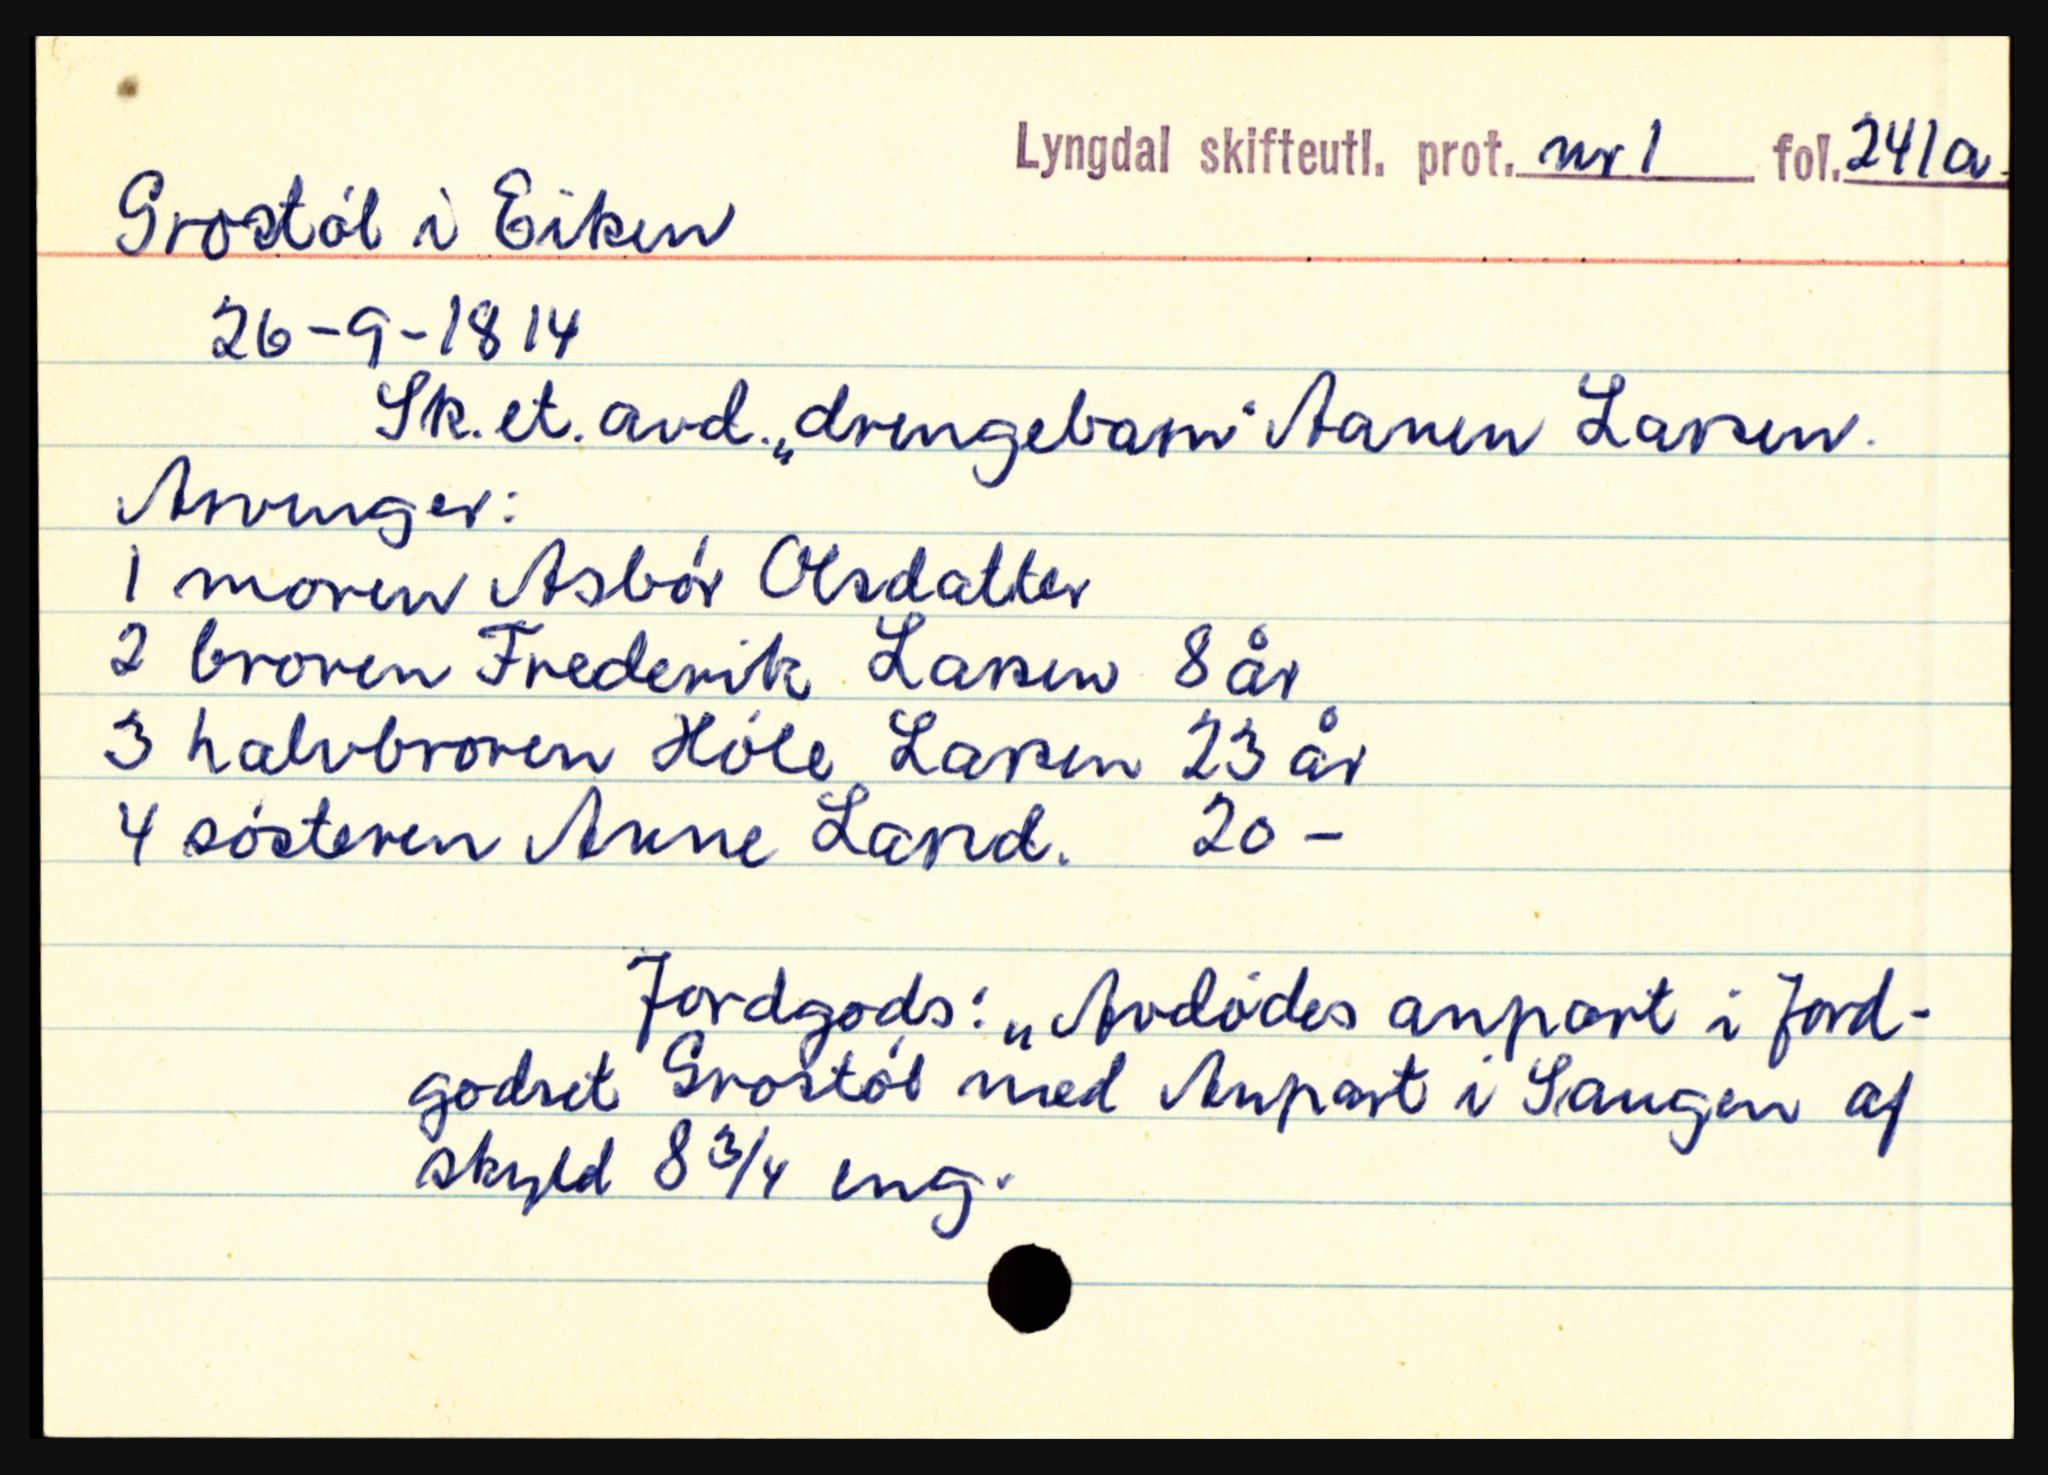 Lyngdal skifteutl. prot. nr 1 fol. 241a.
Grostól i Eiken
26-9-1814
Sk. et. avd. „drengebarn" Aanen Larsen.
Arvinger:
1 moren Asbór Olsdatter
2 broren Frederik Larsen 8 år
3 halvbroren Hóle Larsen 23 år
4 sósteren Anne Larsd. 20 -
Jordgods: „Avdódes anpart i Jord-
godset Grostól med Anpart i Saugen af
skyld 8 3/4 eng.